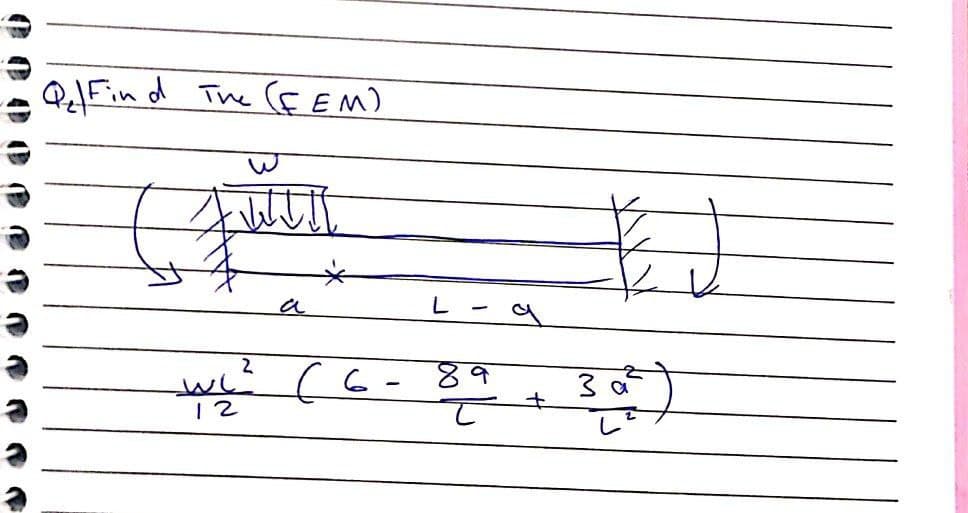 Q2|Find The (FEM)
w
a L - a
wL²/12 (6 - 8a/L + 3a²/L²)